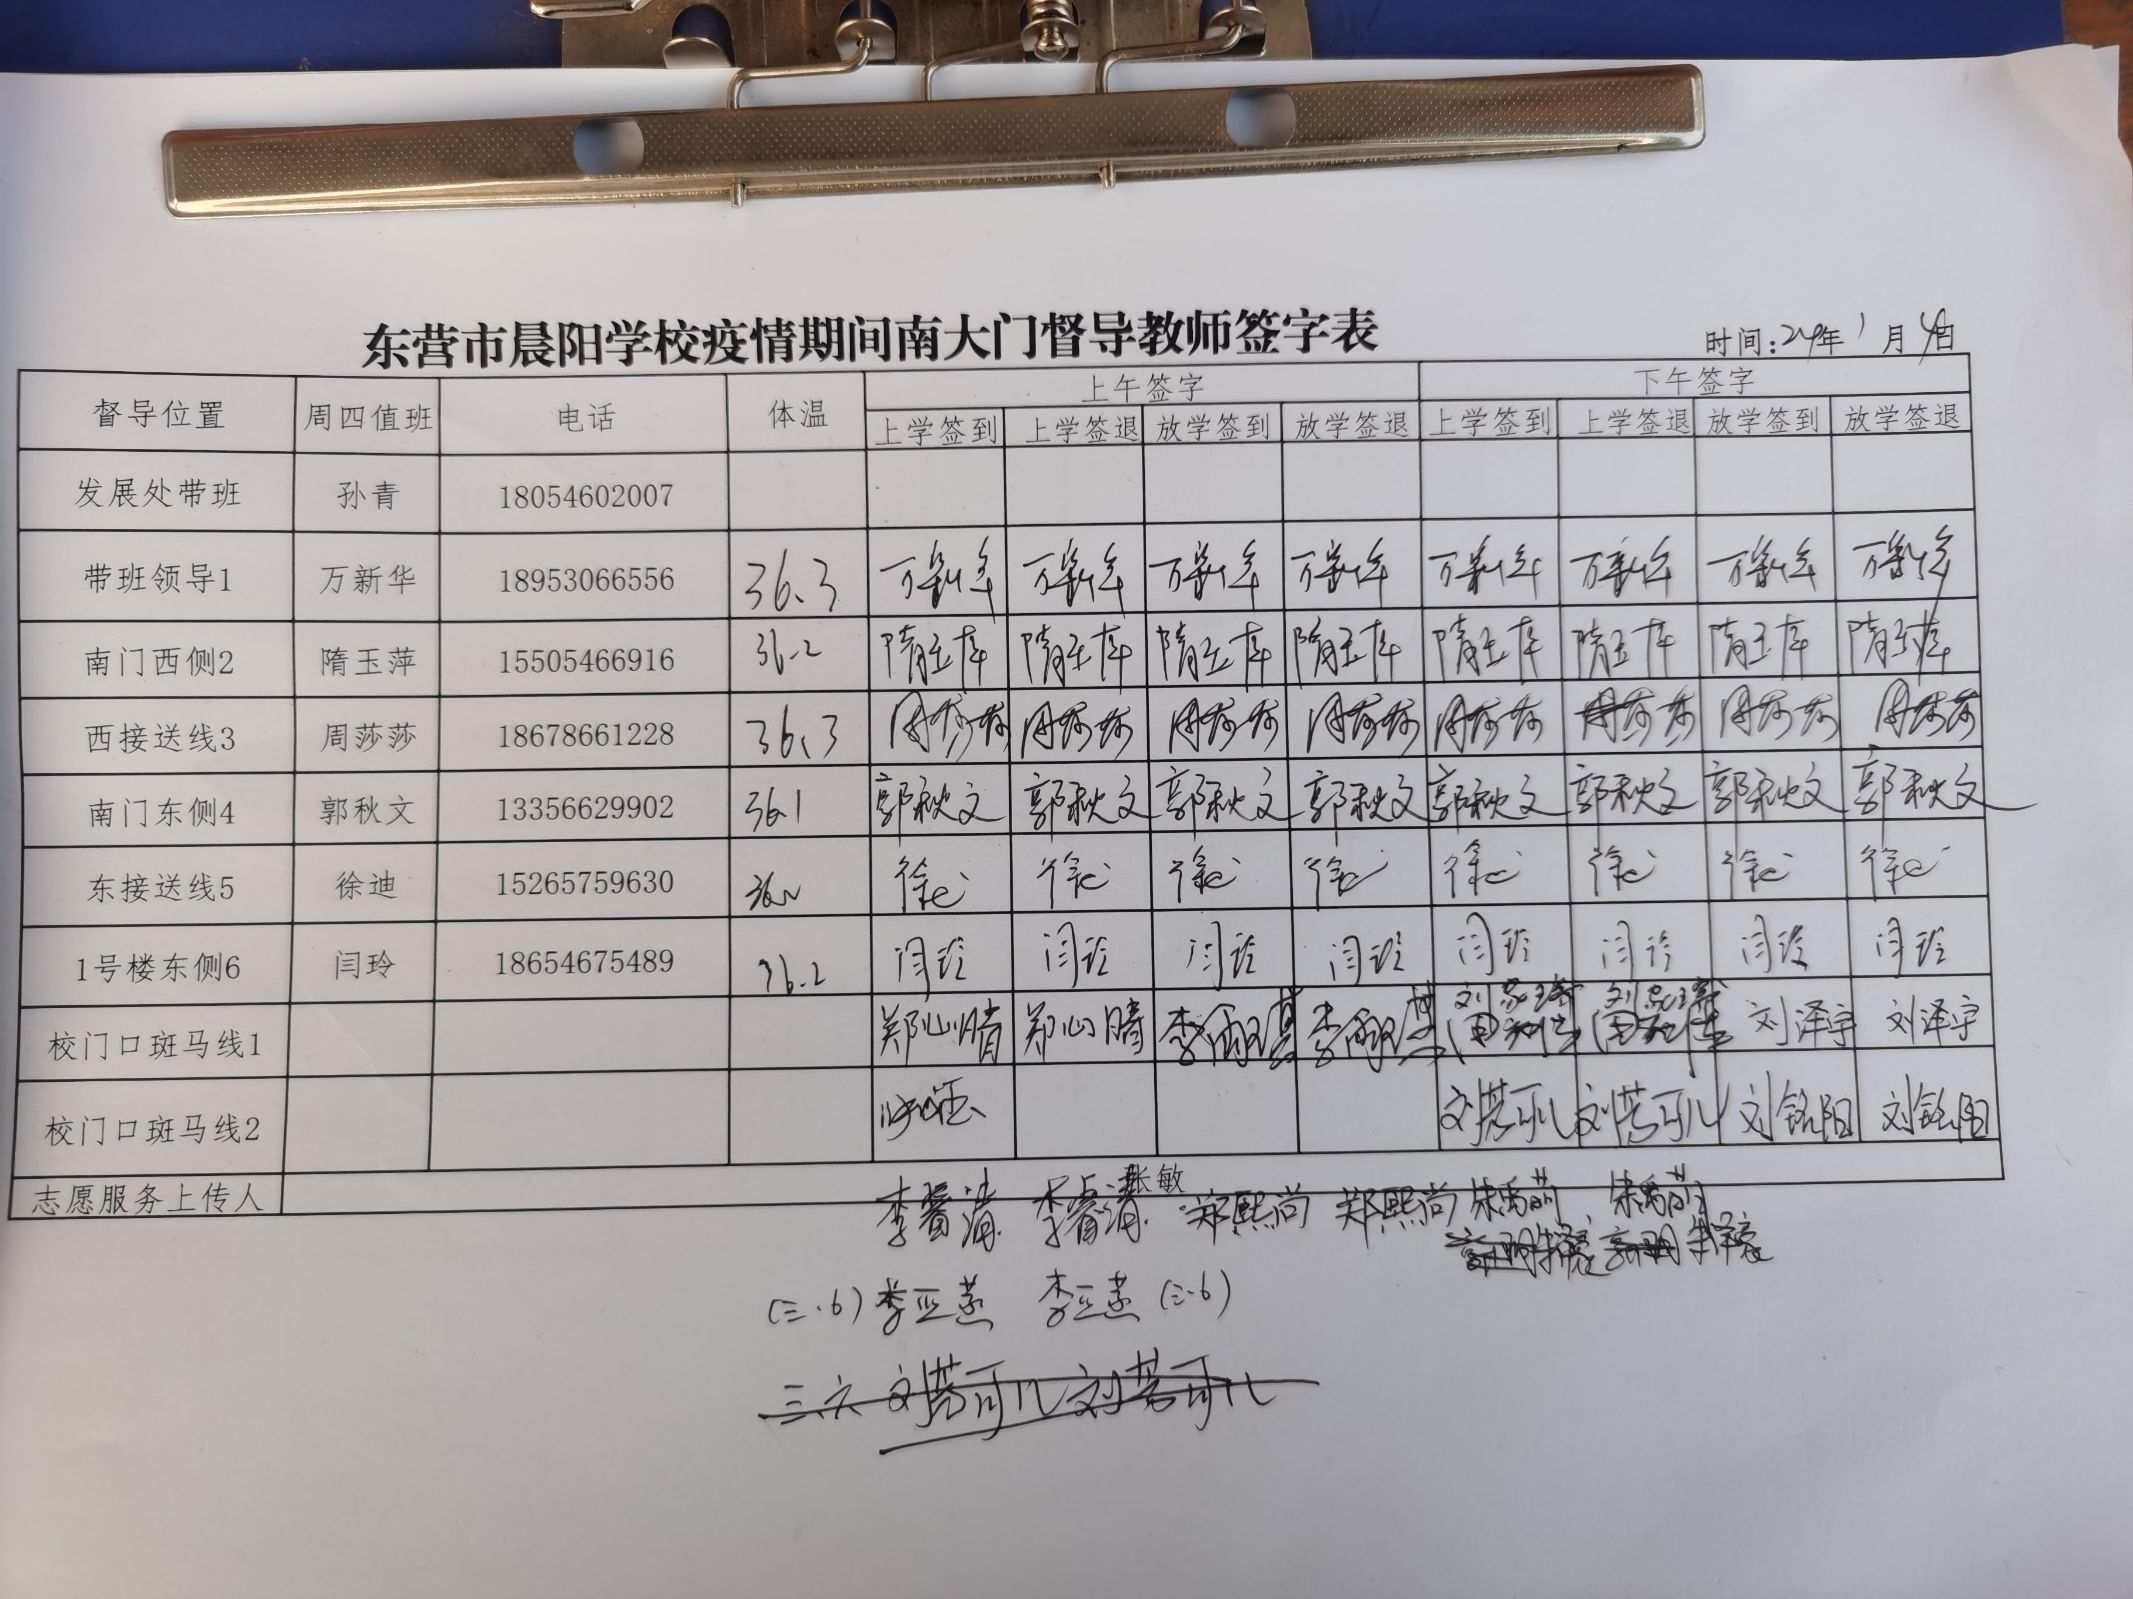 东营市晨阳学校疫情期间南大门督导教师签字表
时间:24年1月4日
督导位置 周四值班 电话 体温 上午签字 下午签字
上学签到 上学签退 放学签到 放学签退 上学签到 上学签退 放学签到 放学签退
发展处带班 孙青 18054602007
带班领导1 万新华 18953066556 36.3 万新华 万新华 万新华 万新华 万新华 万新华 万新华 万新华
南门西侧2 隋玉萍 15505466916 36.2 隋玉萍 隋玉萍 隋玉萍 隋玉萍 隋玉萍 隋玉萍 隋玉萍 隋玉萍
西接送线3 周莎莎 18678661228 36.3 周莎莎 周莎莎 周莎莎 周莎莎 周莎莎 周莎莎 周莎莎 周莎莎
南门东侧4 郭秋文 13356629902 36.1 郭秋文 郭秋文 郭秋文 郭秋文 郭秋文 郭秋文 郭秋文 郭秋文
东接送线5 徐迪 15265759630 徐迪 徐迪 徐迪 徐迪 徐迪 徐迪 徐迪 徐迪
1号楼东侧6 闫玲 18654675489 36.2 闫玲 闫玲 闫玲 闫玲 闫玲 闫玲 闫玲 闫玲
校门口斑马线1 刘泽宇 刘泽宇
校门口斑马线2 刘芸可儿 刘芸可儿 刘铭阳 刘铭阳
志愿服务上传人 张敏
李睿涛 李睿涛 郑熙尚 郑熙尚 朱禹萌 朱禹萌
(三.6) 李亚燕 李亚燕 (三.6)
三.六 刘芸可儿 刘芸可儿